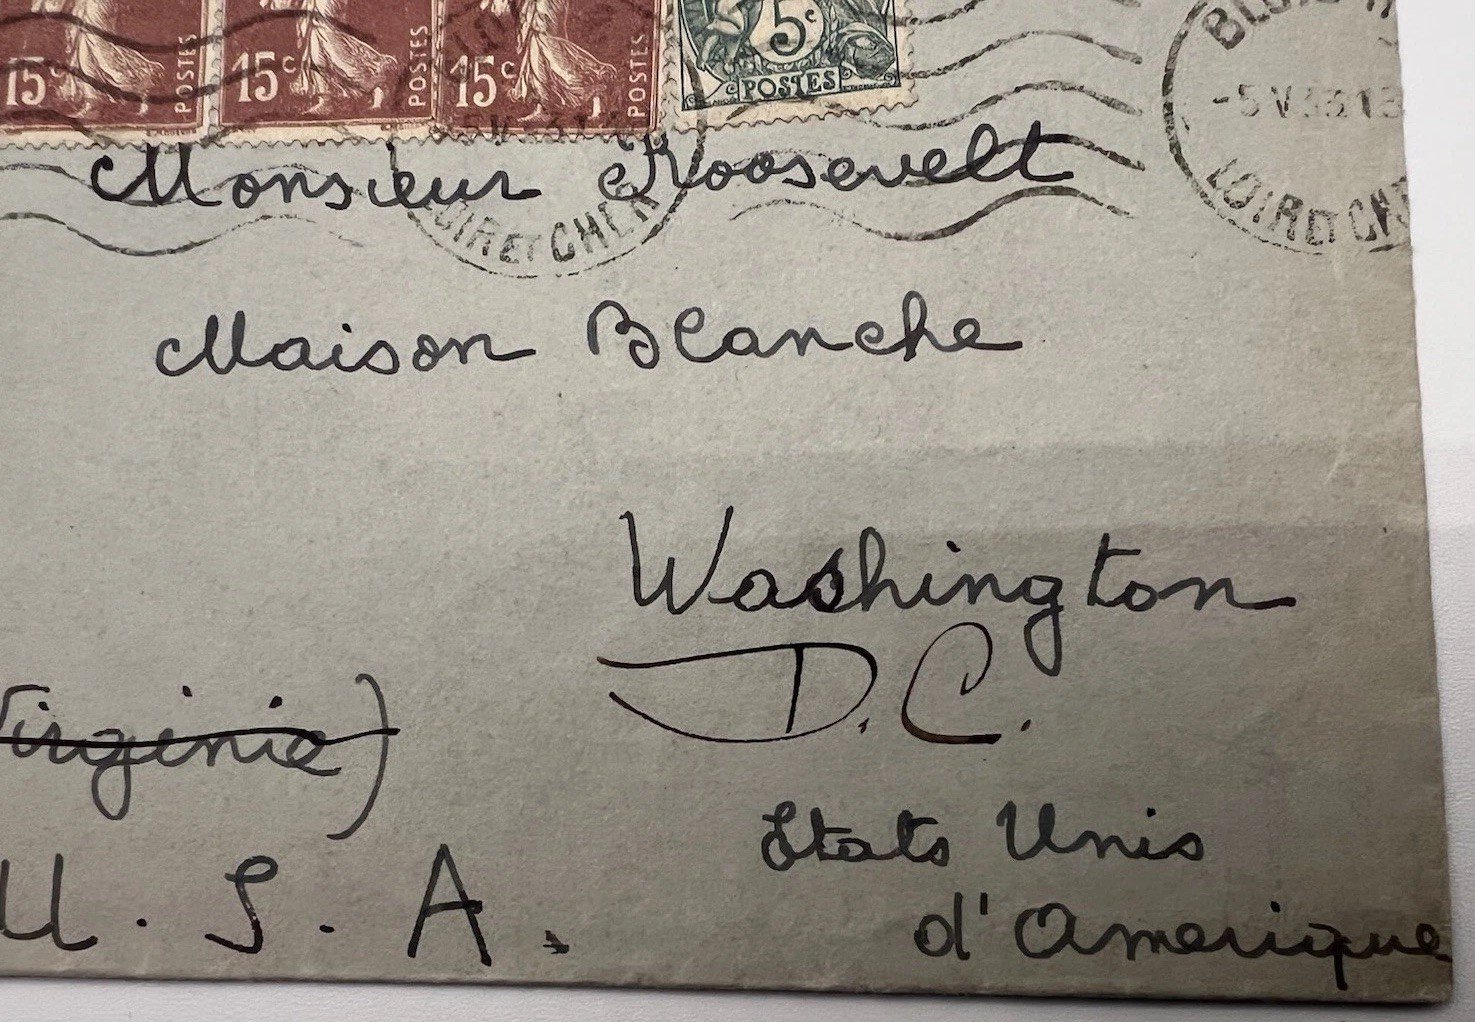 15c POSTES 15c POSTES 15c POSTES 5c POSTES
Monsieur Roosevelt
LOIR ET CHER
LOIR ET CHER
Maison Blanche
Washington
D.C.
Virginie)
Etats Unis
U. S. A.
d'Amerique